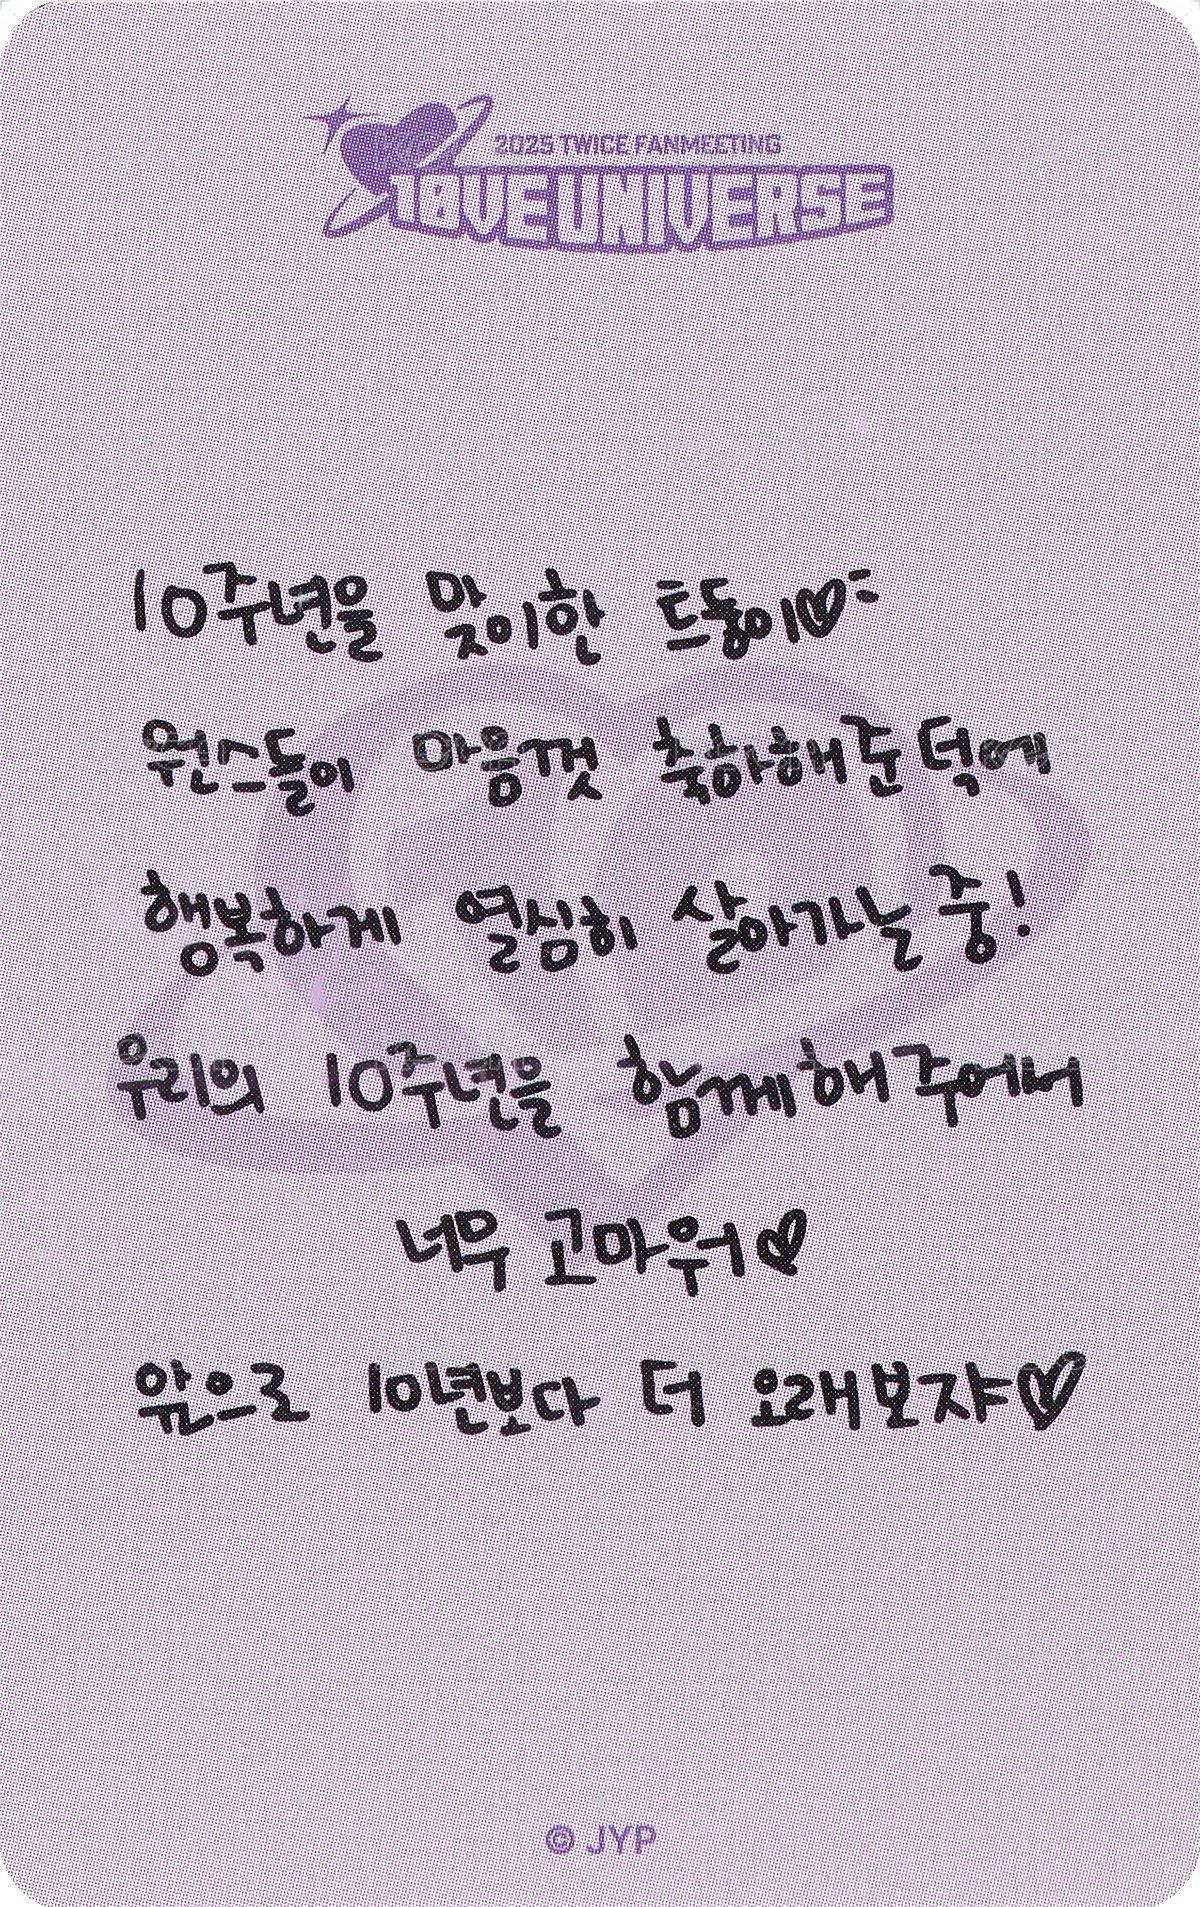 2025 TWICE FANMEETING
10VE UNIVERSE
10주년을 맞이한 트둥이♡
원스들이 마음껏 축하해준 덕에
행복하게 열심히 살아가는 중!
우리의 10주년을 함께해주어서
너무 고마워♡
앞으로 10년보다 더 오래보쟈♡
© JYP